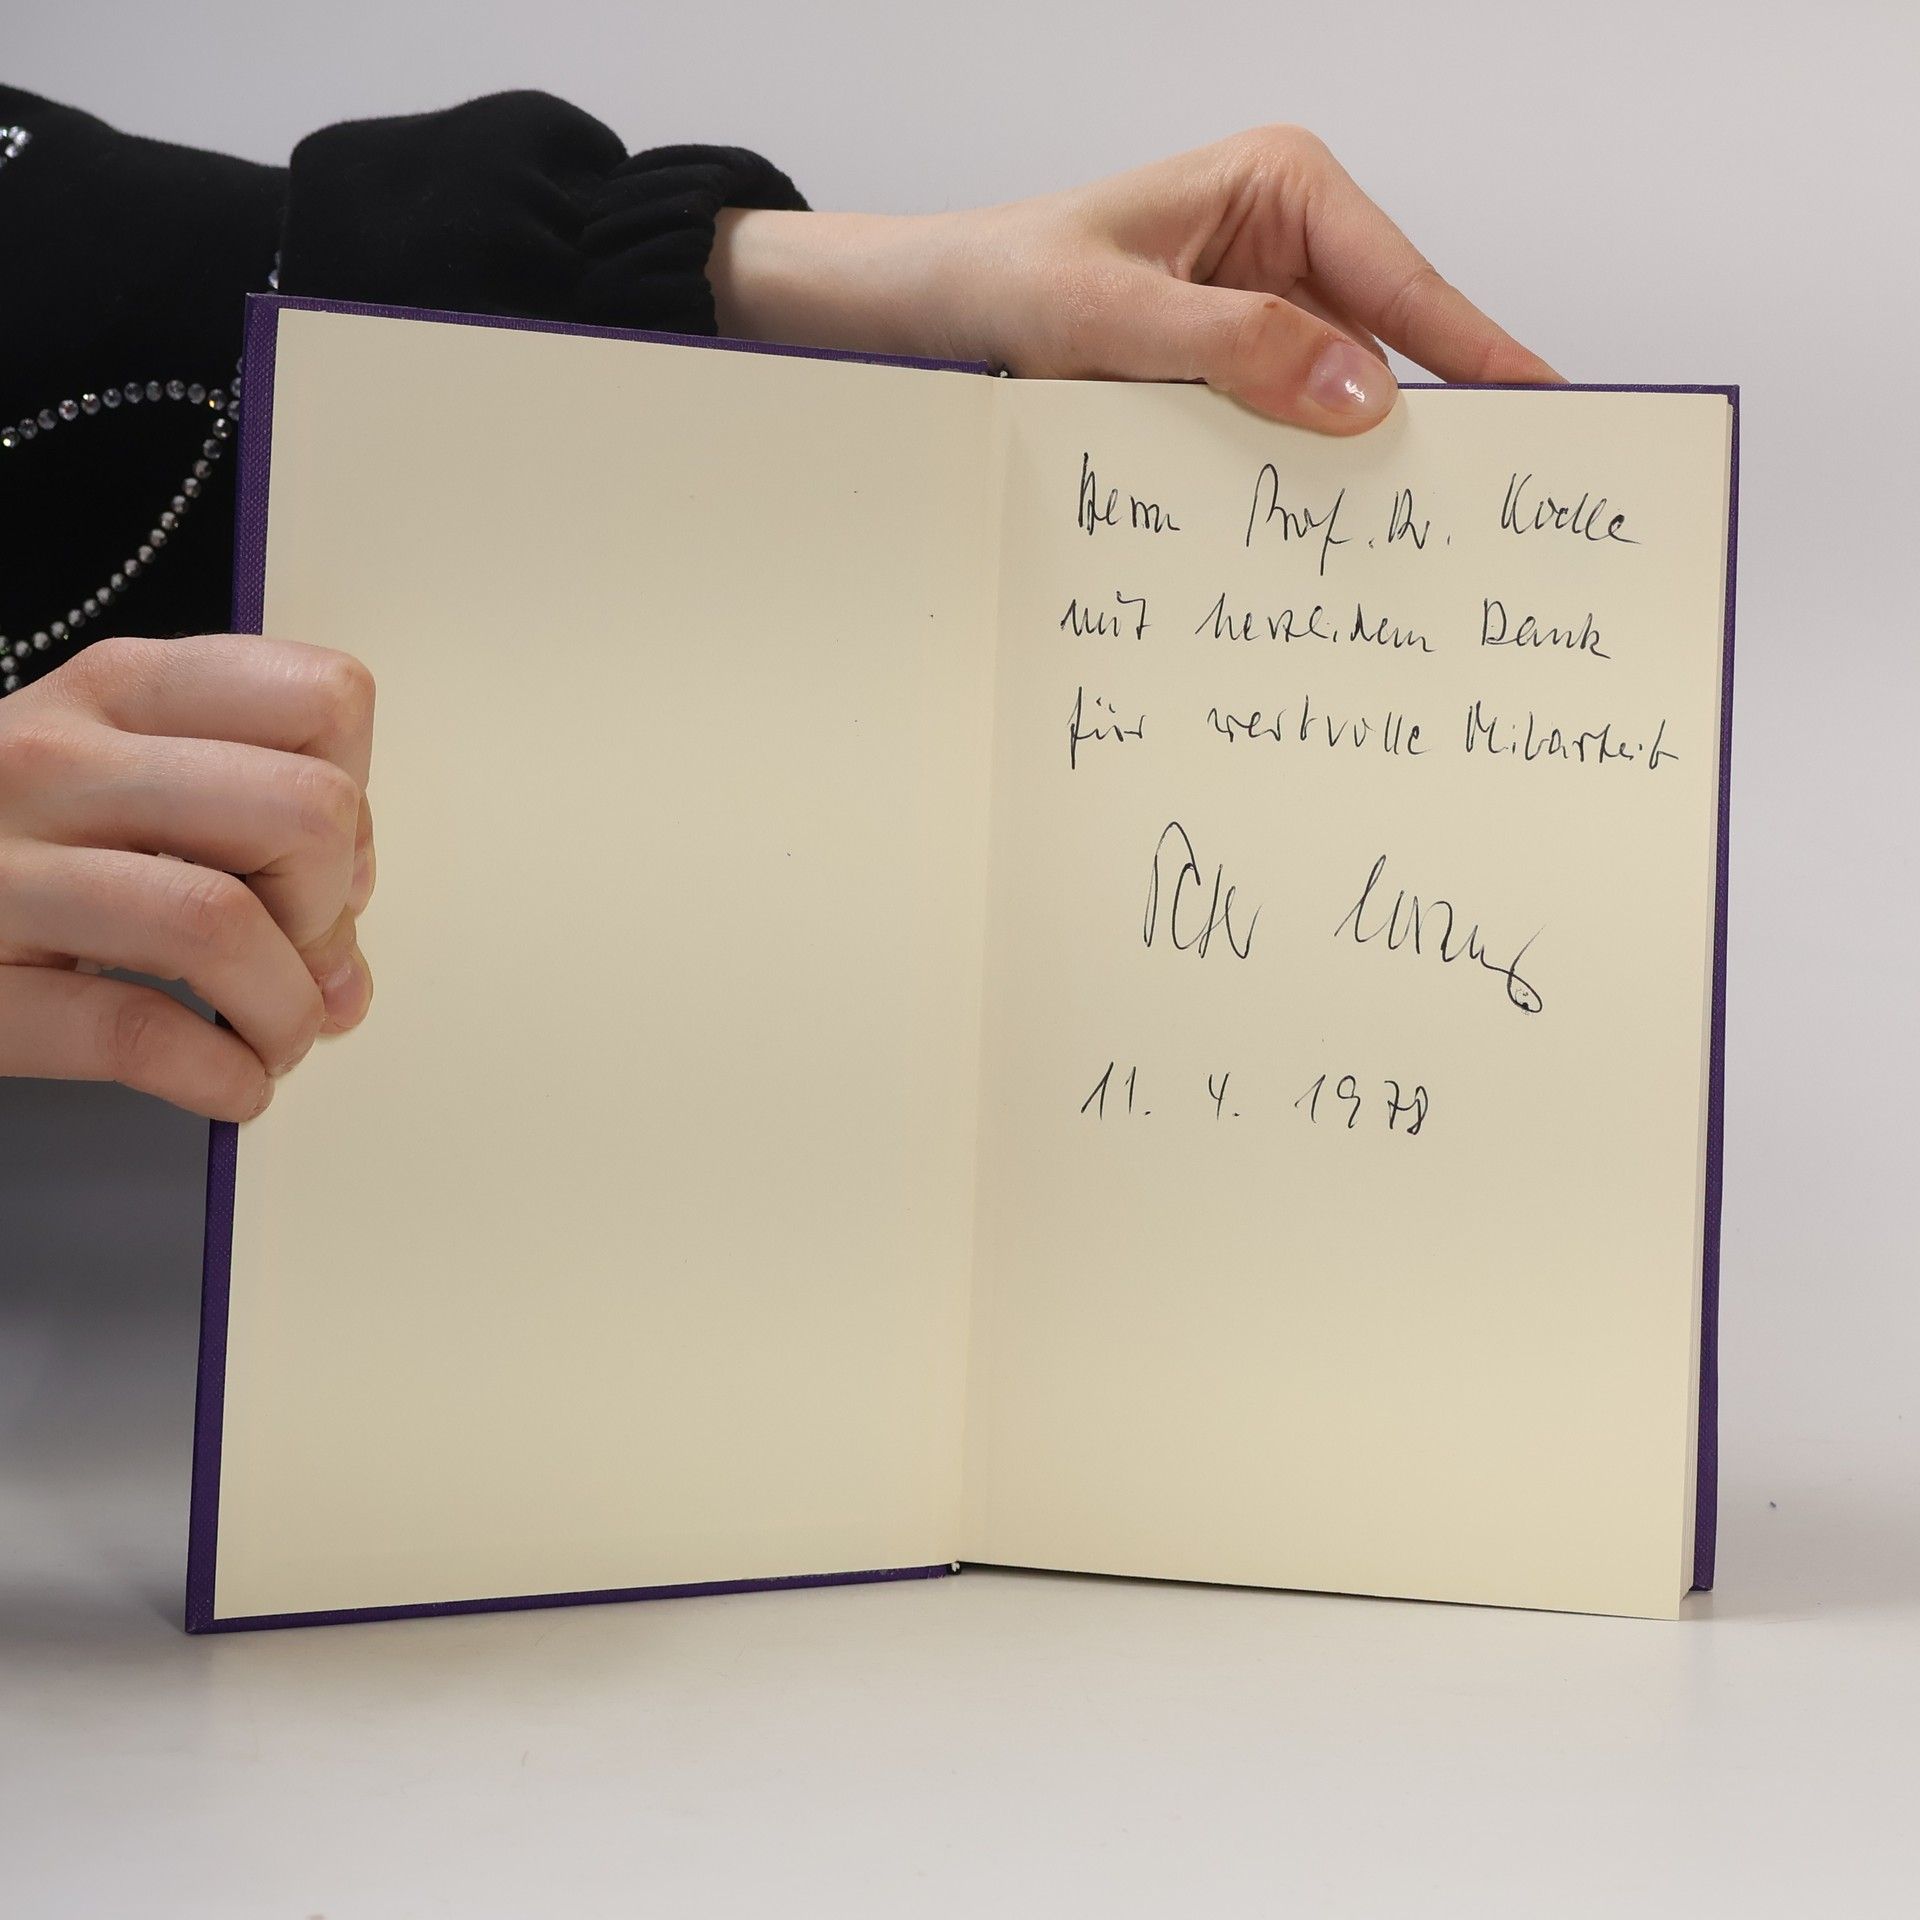 Herrn Prof. Dr. Kodle
mit herzlichem Dank
für wertvolle Mitarbeit
Peter Lorenz
11. 4. 1978